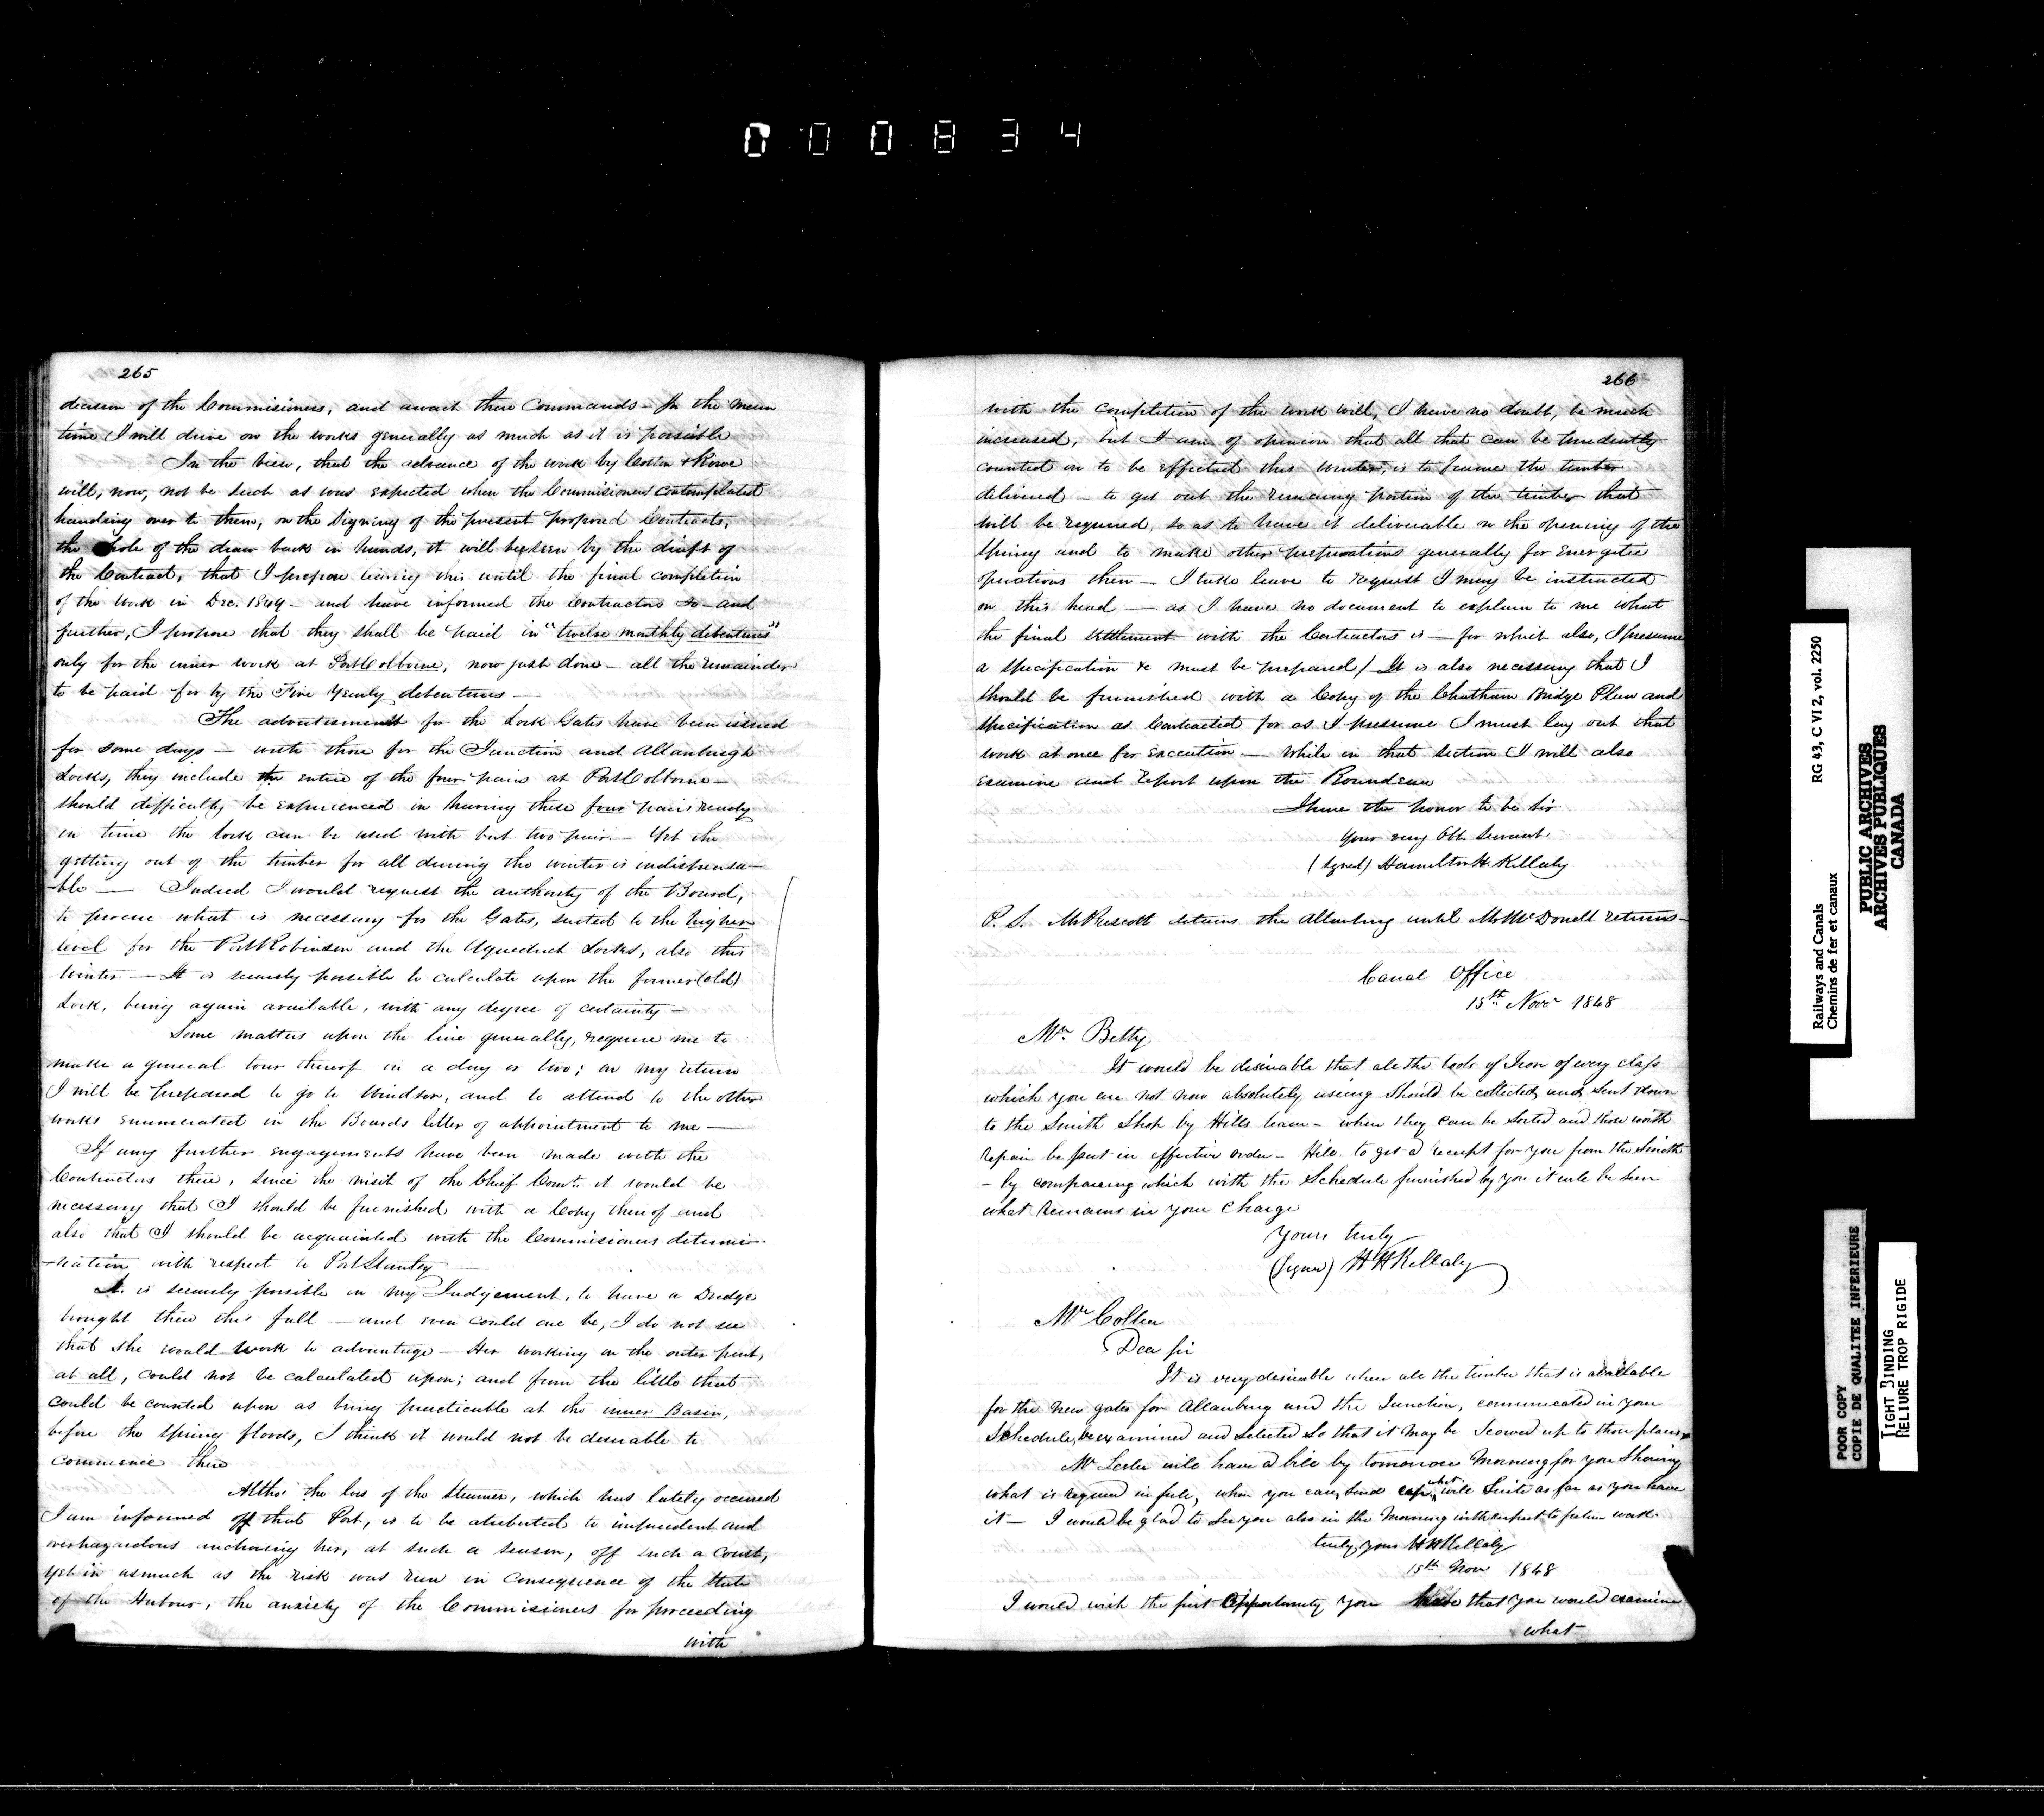 000834
265
decision of the Commisioners, and await there Commands - In the mean
time I will drive on the works generally as much as it is possible
In the view, that the advance of the work by Cotton & Rowe
will, now, not be such as was expected when the Commisioners contemplated
handing over to them, on the signing of the present proposed Contracts,
the whole of the draw back in hands, it will be seen by the draft of
the Contract, that I propose leaving this until the final completion
of the work in Dec. 1849 - and have informed the Contractors so - and
further, I propose that they shall be paid in "twelve monthly debentures"
only for the inner work at Port Colborne, now just done - all the remainder
to be paid for by the Five Yearly debentures -
The advertisement for the Lock Gates have been issued
for some days - with those for the Junction and Allanburgh
Locks, they include the entire of the four pairs at Port Colborne -
should difficulty be experienced in having these four pairs ready
in time the lock can be used with but two pair - Yet the
getting out of the timber for all during the winter is indispensa-
-ble - Indeed I would request the authority of the Board,
to procure what is necessary for the Gates, suited to the higher
level for the Port Robinson and the Aqueduct Locks, also this
Winter - It is scarcely possible to calculate upon the former (old)
Lock, being again available, with any degree of certainty -
Some matters upon the line generally, require me to
make a general tour thereof in a day or two; on my return
I will be prepared to go to Windsor, and to attend to the other
works enumerated in the Boards letter of appointment to me -
If any further engagements have been made with the
Contractors there, since the visit of the Chief Comr. it would be
necessary that I should be furnished with a Copy thereof and
also that I should be acquainted with the Commisioners determi-
-nation with respect to Port Stanley
It is scarcely possible in my Judgement, to have a Dredge
brought there this fall - and even could one be, I do not see
that she would work to advantage - Her working on the outer part,
at all, could not be calculated upon; and from the little that
could be counted upon as being practicable at the inner Basin,
before the spring floods, I think it would not be desirable to
commence there
Altho' the loss of the Steamer, which has lately occured
I am informed off that Port, is to be atributed to imprudent and
overhazardous anchoring her, at such a season, off such a Coast,
yet in asmuch as the risk was run in consequence of the State
of the Harbour, the anxiety of the Commisioners for proceeding
with
266
with the completion of the work will, I have no doubt, be much
increased, but I am of opinion that all that can be prudently
counted on to be effected this Winter, is to frame the timber
delivered - to get out the remaing portion of the timber that
will be required, so as to have it deliverable on the opening of the
spring and to make other preparations generally for energetic
operations then - I take leave to request I may be instructed
on this head - as I have no document to explain to me what
the final settlement with the Contractors is - for which also, I presume
a specification &c must be prepared / It is also necessary that I
should be furnished with a Copy of the Chatham Bridge Plan and
specification as Contracted for as I presume I must lay out that
work at once for execution - While in that section I will also
examine and report upon the Roundeau
I have the honor to be Sir
Your very Obt. Servant.
(signed) Hamilton H. Killaly
P. S. Mr Prescott detains the Allanburg until Mr McDonell returns -
Canal Office
15th Novr 1848
Mr. Betty
It would be desirable that all the tools of Iron of every class
which you are not now absolutely useing should be collected, and sent down
to the Smith Shop by Hills team - where they can be sorted and those worth
repair be put in effective order - Hill to get a receipt for you from the Smith
- by compareing which with the Schedule furnished by you it will be seen
what remains in your charge
Yours truly
(signed) H H Killaly
Mr Collen
Dear Sir
It is very desirable when all the timber that is available
for the new gates for Allanburg and the Junction, comunicated in your
Schedule, be examined and selected so that it may be Scowed up to those places
Mr Leslie will have a bill by tomorrow Morning for you Shewing
what is required in full, when you can, send up, what will Suite as far as you have
it - I would be glad to see you also in the Morning with respect to future work.
truly yours H H Killaly
15th Nov 1848
I would wish the first Oppertunity you have that you would examine
what
Railways and Canals
Chemins de fer et canaux
RG 43, C VI 2, vol. 2250
PUBLIC ARCHIVES
ARCHIVES PUBLIQUES
CANADA
POOR COPY
COPIE DE QUALITEE INFERIEURE
TIGHT BINDING
RELIURE TROP RIGIDE